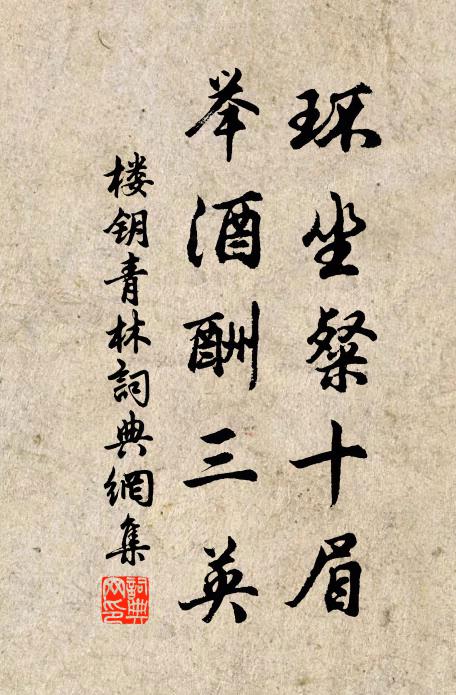 环坐粲十眉
举酒酬三英
楼钥青林詞典網集
詞典网印